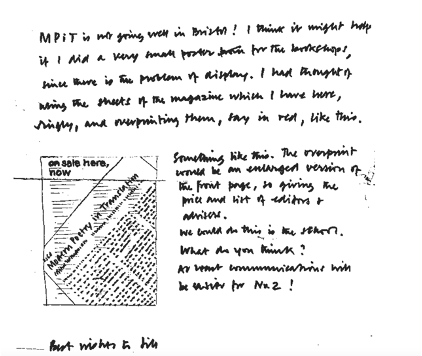 MPiT is not going well in Bristol! I think it might help
if I did a very small poster for the bookshops,
since there is the problem of display. I had thought of
using the sheets of the magazine which I have here,
singly, and overprinting them, say in red, like this.
on sale here,
now
Modern Poetry in Translation
Something like this. The overprint
would be an enlarged version of
the front page, so giving the
price and list of editors &
advisers.
We could do this in the school.
What do you think?
At least communications will
be easier for No 2!
Best wishes to